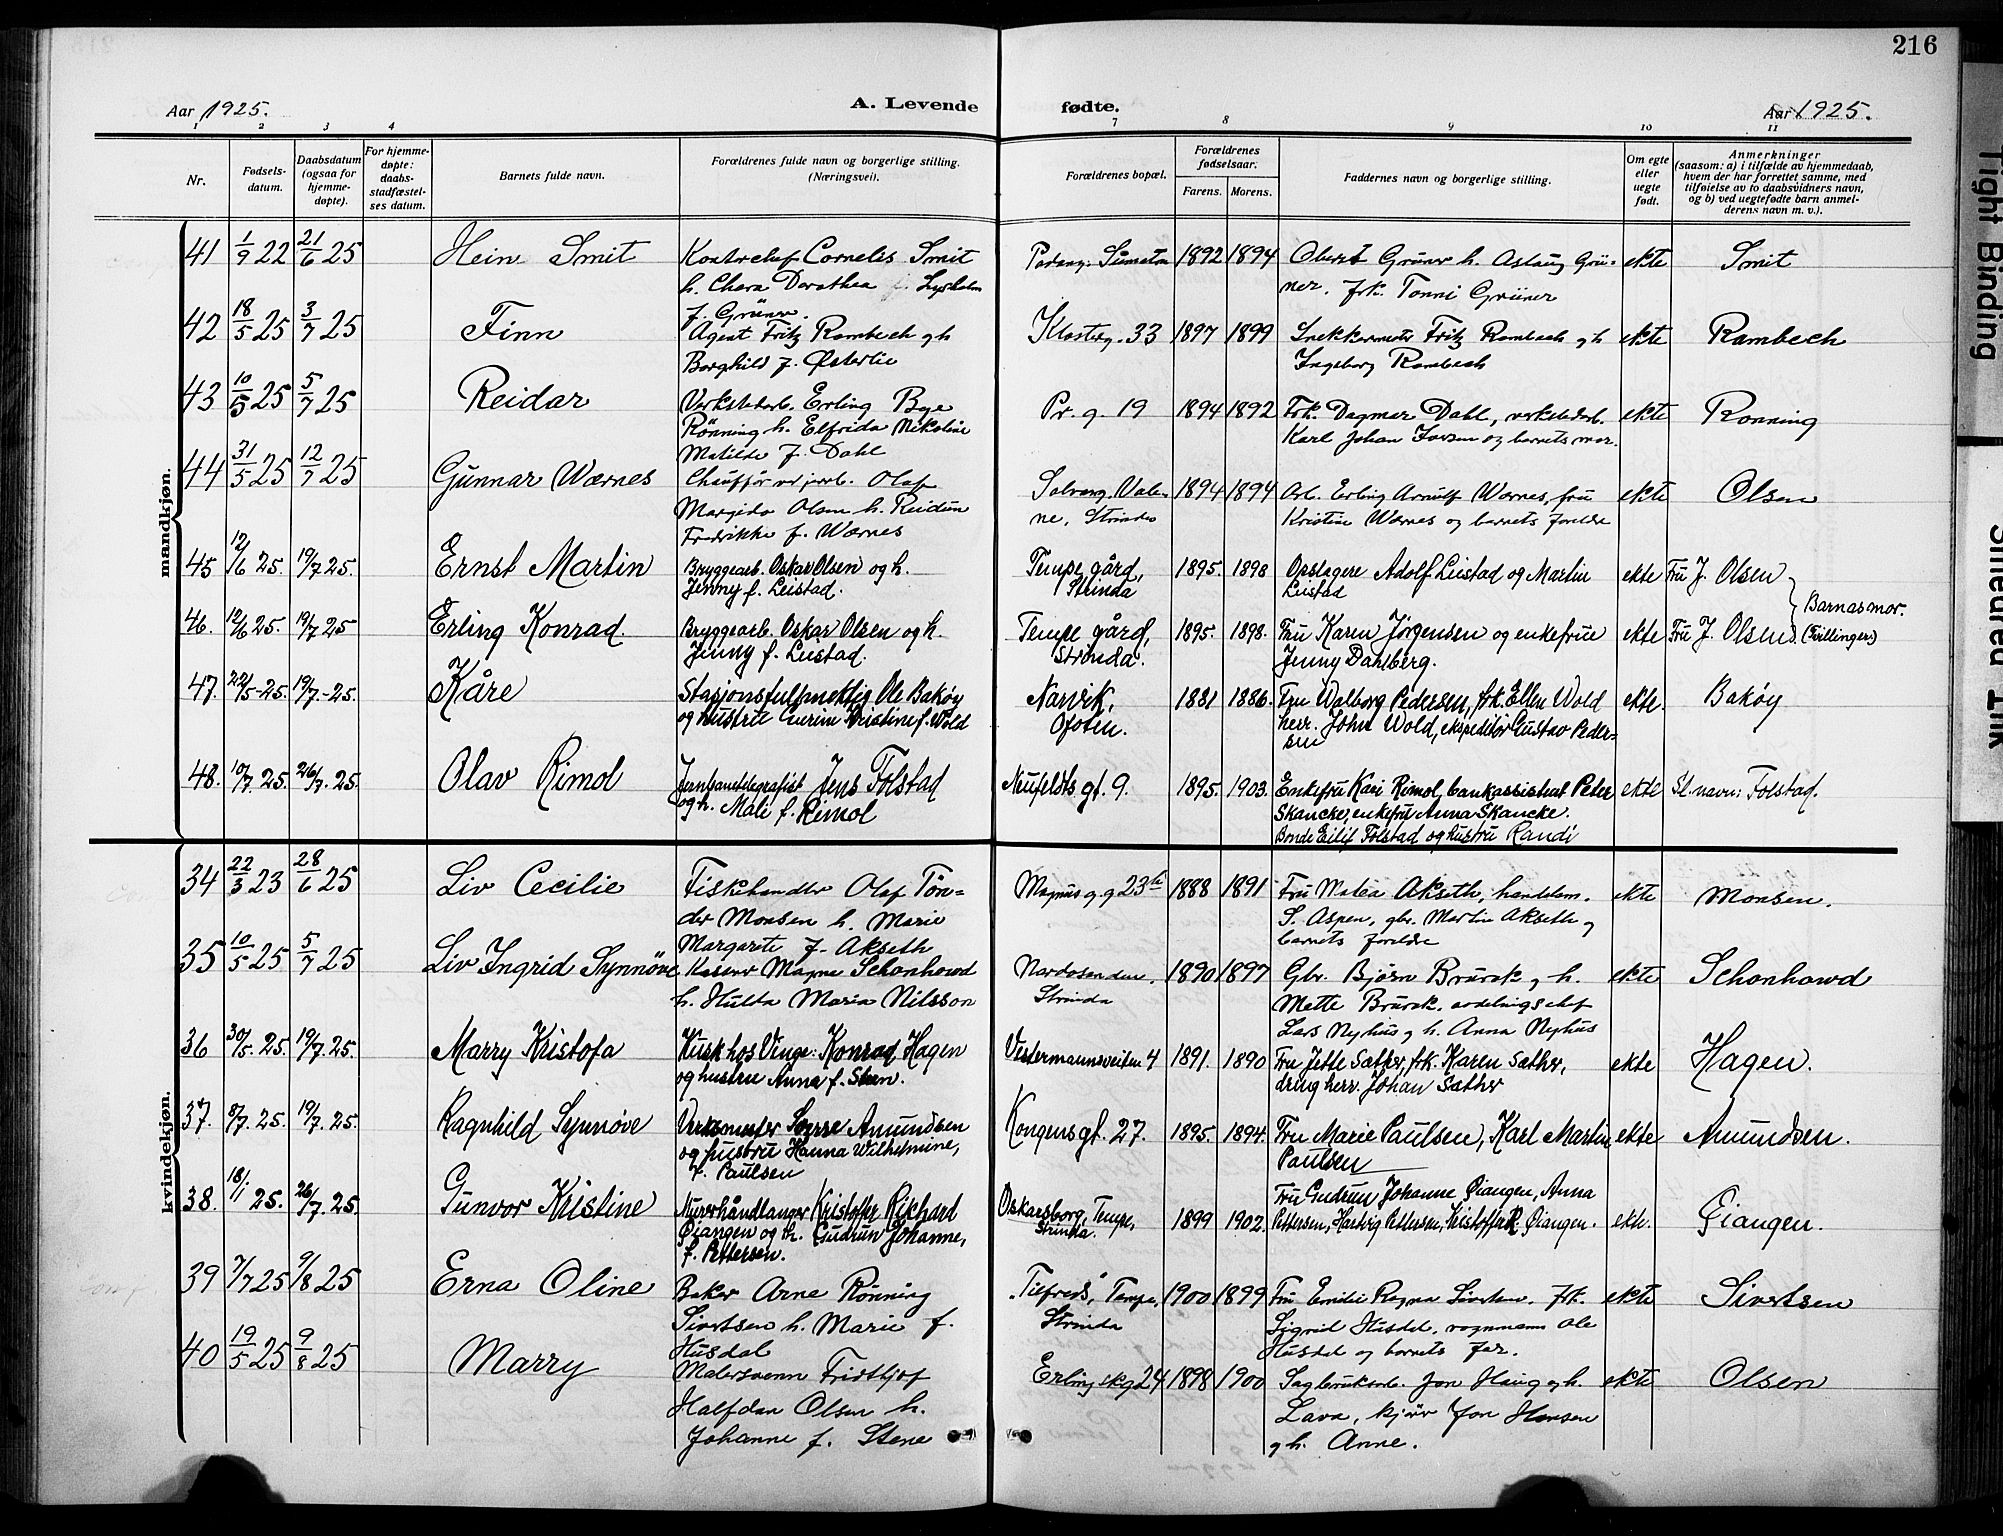 216
Aar 1925.
A. Levende
fødte.
Aar 1925.
1 2 3 4 7 8 9 10 11
Nr.
Fødsels-
datum.
Daabsdatum
(ogsaa for
hjemme-
døpte).
For hjemme-
døpte:
daabs-
stadfæstel-
ses datum.
Barnets fulde navn.
Forældrenes fulde navn og borgerlige stilling.
(Næringsvei).
Forældrenes bopæl.
Forældrenes
fødselsaar.
Farens. Morens.
Faddernes navn og borgerlige stilling.
Om egte
eller
uegte
født.
Anmerkninger
(saasom: a) i tilfælde av hjemmedaab,
hvem der har forrettet samme, med
tilføielse av to daabsvidners navn,
og b) ved uegtefødte barn anmel-
derens navn m. v.).
mandkjøn.
41 1/9 22 21/6 25 Hein Smit Kontorchef Cornelis Smit Padang. Sumatra 1892 1894 Oberst Grüner h. Aslaug Grü- ekte Smit
h. Chara Dorothea f. Lysholm ner. frk. Tonni Grüner
f. Grüner.
42 18/5 25 3/7 25 Finn Agent Fritz Rambech og h Klosterg. 33 1897 1899 Snekkermester Fritz Rambech og h ekte Rambech
Borghild f. Østerlie Ingeborg Rambech
43 10/5 25 5/7 25 Reidar Verkstedarb. Erling Bye Pr. g. 19 1894 1892 Frk. Dagmar Dahl, verkstedarb. ekte Rønning
Rönning h. Elfrida Nikoline Karl Johan og barnets mor.
Matilde f. Dahl
44 31/5 25 12/7 25 Gunnar Wærnes Chauffør Olaf Solvang, Valø- 1894 1894 Arb. Erling Arnulf Wærnes, fru ekte Olsen
Margido Olsen h. Reidun ne, Strinda Kristine Wærnes og barnets foreldre
Fredrikke f. Wærnes
45 12/6 25. 19/7 25. Ernst Martin Bryggearb. Oskar Olsen og h. Tempe gård, 1895. 1898 Opslagere Adolf Leistad og Martin ekte Fru J. Olsen
Jenny f. Leistad. Strinda Leistad
Barnas mor.
46. 12/6 25. 19/7 25 Erling Konrad. Bryggearb. Oskar Olsen og h. Tempe gård, 1895. 1898. Fru Karen Jörgensen og enkefrue ekte Fru J. Olsen. (Tvillinger)
Jenny f. Leistad. Strinda. Jenny Dahlberg.
47. 22/5-25. 19/7.-25. Kåre Stasjonsfulmektig Ole Bakøy Narvik, 1881 1886. Fru Walborg Pedersen, frk. Ellen Wold ekte. Bakøy
og hustru Gurine Kristine f. Wold Ofoten. herr. John Wold, ekspeditør Gustav Peder-
sen
48. 10/7. 25. 26/7. 25. Olav Rimol Jernbanetelegrafist Jens Tolstad Neufeldts gt. 9. 1895. 1903. Enkefru Kari Rimol, bankassistent Peter ekte Sl. navn: Tolstad.
og h. Mali f. Rimol Skancke, enkefru Anna Skancke.
Bonde Eilif Tolstad og hustru Randi
kvindekjøn.
34 22/3 23 28/6 25 Liv Cecilie Fiskehandler Olaf Tøn- Magnus g. g 23 1888 1891 Fru Matea Akseth, handelsm. ekte Monsen.
der Monsen h. Marie S. Aspen, gbr. Martin Akseth og
Margrete f. Akseth barnets foreldre
35 10/5 25 5/7 25 Liv Ingrid Synnøve Magne Schonhowd Nardosanden. 1890 1897 Gbr. Bjørn Brürok og h. ekte Schonhowd
h. Hulda Maria Nilsson Strinda Mette Brürok. avdelingschef
Lars Nyhus og h. Anna Nyhus
36 30/5. 25. 19/7. 25. Marry Kristofa Kusk hos Vinge: Konrad Hagen Vestermannsveiten 4 1891. 1890 Fru Jette Sæther, frk. Karen Sæther, ekte Hagen.
og hustru Anna f. Steen. dreng herr. Johan Sæther
37. 8/7. 25. 19/7. 25. Ragnhild Synnøve Verksmester Sverre Amundsen Kongens gt. 27. 1895. 1894. Fru Marie Paulsen, Karl Martin ekte Amundsen.
og hustru Hanna Wilhelmine, Paulsen
f. Paulsen
38. 18/1. 25. 26/7. 25. Gunvor Kristine Murerhåndlanger Kristoffer Rikhard Oskarsborg, Tempe, 1899 1902. Fru Gudrun Johanne Øiangen, Anna ekte. Øiangen.
Øiangen og h. Gudrun Johanne, Strinda. Pettersen, Hartvig Pettersen, Kristoffer R. Øiangen.
f. Pettersen.
39 7/7 25 9/8 25 Erna Oline Baker Arne Rönning Tilfreds, Tempe, 1900 1899 Fru Emilie Ragna Sivertsen. frk. ekte Sivertsen
Sivertsen h. Marie f. Strinda Sigrid Husdal, vognmann Ole
Husdal Husdal og barnets far.
40 19/5 25 9/8 25 Marry Malersvenn Fridthjof Erling skg 24 1898 1900 Sagbruksarb. Jon Haug og h. ekte Olsen
Halfdan Olsen h. Lava, Jon Hansen
Johanne f. Stene og h. Anne.
Tight Binding
Smeared Ink